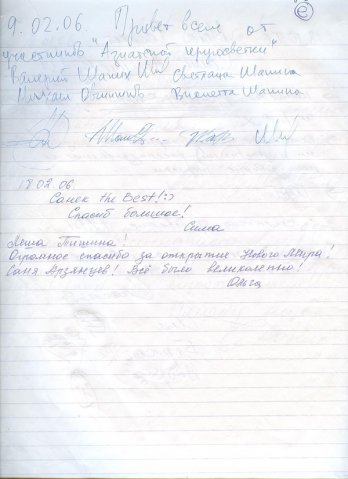 9.02.06. Привет всем от
участников "Азиатской кругосветки"
Валерий Шанин Светлана Шанина
Михаил Виолетта Шанина
18.02.06.
Санек the Best! :)
Спасиб большое!
Сима
Леша Пишина!
Огромное спасибо за открытие Нового Мира!
Саня Арзянцев! Всё было великолепно!
Ольга